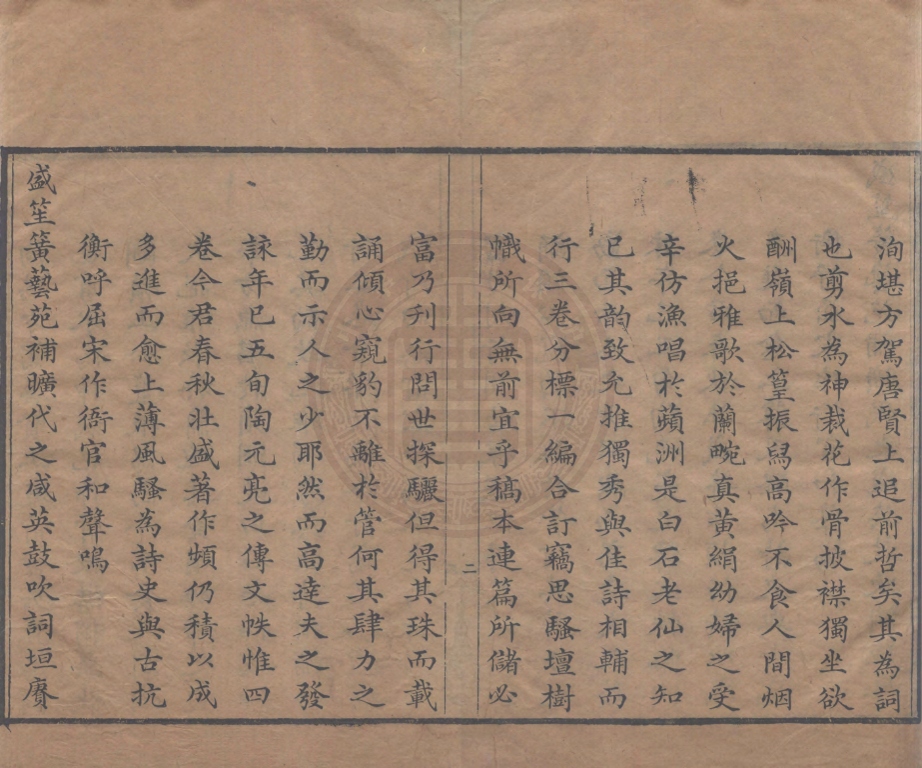 洵堪方駕唐賢上追前哲矣其為詞
也剪水為神裁花作骨披襟獨坐欲
酬嶺上松篁振舄高吟不食人間烟
火挹雅歌於蘭畹真黃絹幼婦之受
辛仿漁唱於蘋洲是白石老仙之知
已其韵致允推獨秀與佳詩相輔而
行三卷分標一編合訂竊思騷壇樹
幟所向無前宜乎稿本連篇所儲必
二
富乃刊行問世探驪但得其珠而載
誦傾心窺豹不離於管何其肆力之
勤而示人之少耶然而高達夫之發
詠年已五旬陶元亮之傳文帙惟四
卷今君春秋壯盛著作頻仍積以成
多進而愈上薄風騷為詩史與古抗
衡呼屈宋作衙官和聲鳴
盛笙簧藝苑補曠代之咸英鼓吹詞垣賡